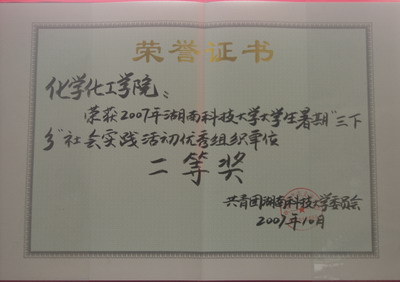 荣誉证书
化学化工学院：
荣获2007年湖南科技大学大学生暑期"三下
乡"社会实践活动优秀组织单位
二等奖
共青团湖南科技大学委员会
2007年10月